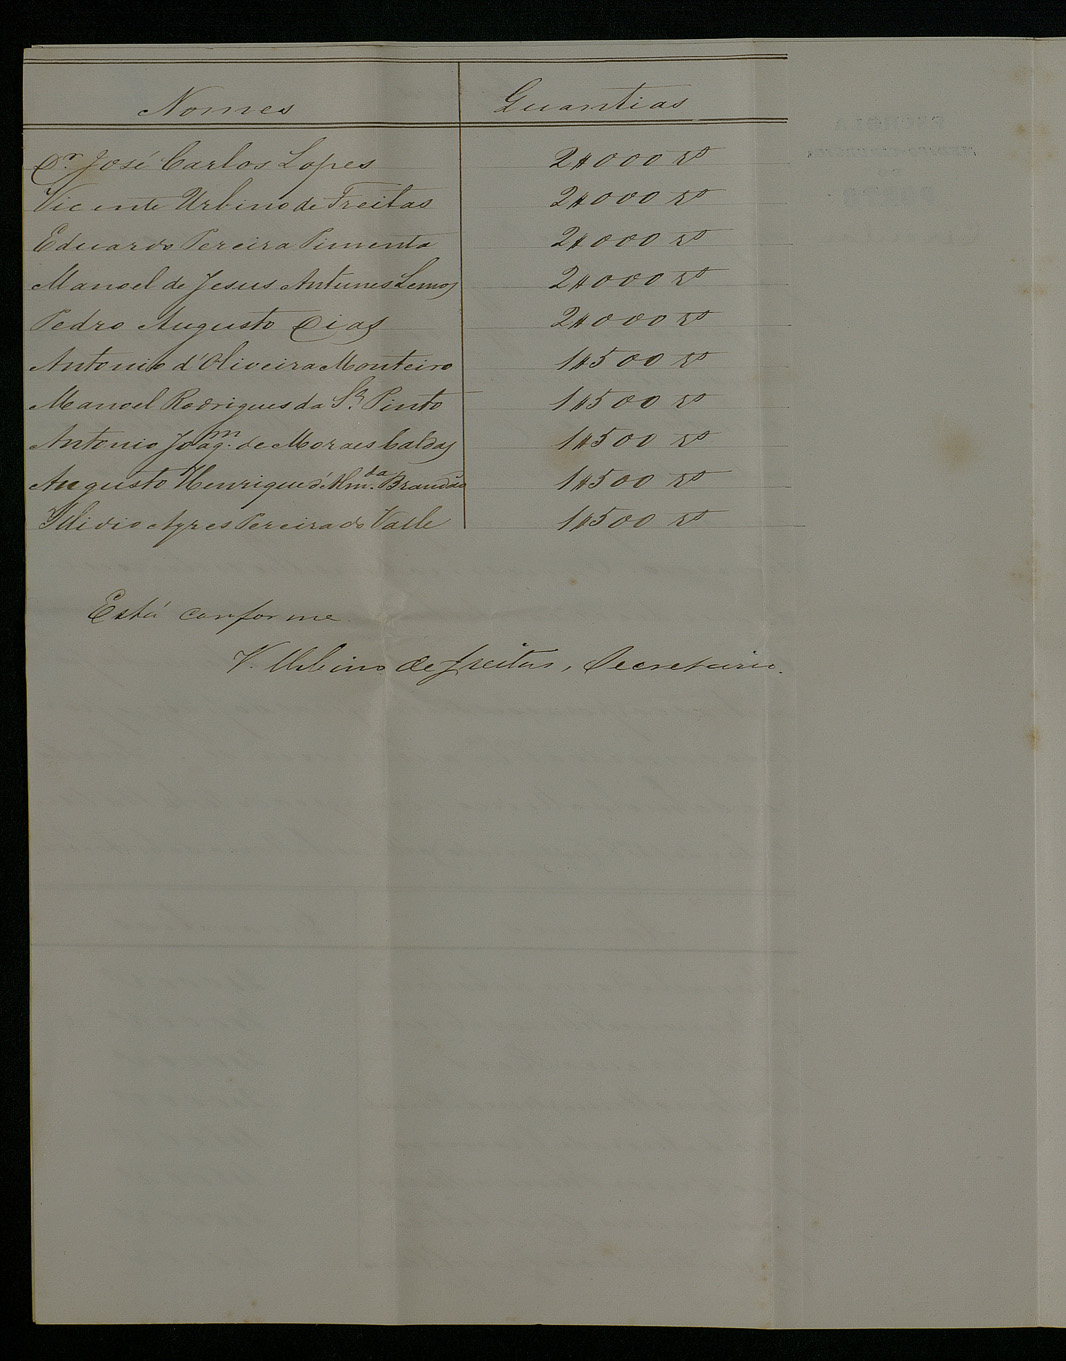 Nomes Quantias
Dr. José Carlos Lopes 2$000 rs
Vicente Urbino de Freitas 2$000 rs
Eduardo Pereira Pimenta 2$000 rs
Manoel de Jesus Antunes Lemos 2$000 rs
Pedro Augusto Dias 2$000 rs
Antonio d'Oliveira Monteiro 1$500 rs
Manoel Rodrigues da Sª Pinto 1$500 rs
Antonio Joaq.m de Moraes Caldas 1$500 rs
Augusto Henrique d'Alm.da Brandão 1$500 rs
Illidio Ayres Pereira do Valle 1$500 rs
Está conforme
V. Urbino de Freitas, Secretario.
ESCHOLA
MEDICO-CIRURGICA
DO
PORTO